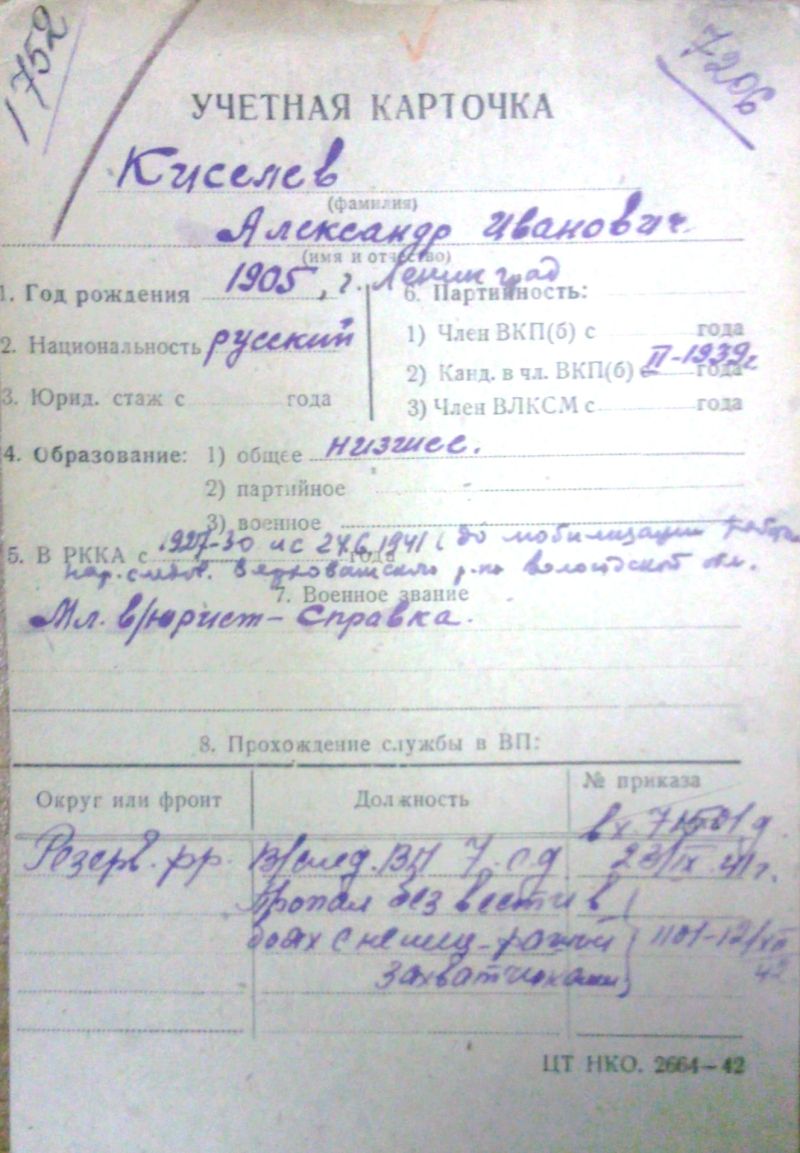 1752
7206
УЧЕТНАЯ КАРТОЧКА
Киселев
(фамилия)
Александр Иванович
(имя и отчество)
1. Год рождения 1905, г. Ленинград
2. Национальность русский
3. Юрид. стаж с года
6. Партийность:
1) Член ВКП(б) с года
2) Канд. в чл. ВКП(б) с II-1939г года
3) Член ВЛКСМ с года
4. Образование: 1) общее низшее.
2) партийное
3) военное
5. В РККА с 1927-30 и с 24.6.1941 года (до мобилизации
нар. следов. р-на Вологодской обл.
7. Военное звание
Мл. в/юрист - справка.
8. Прохождение службы в ВП:
Округ или фронт
Должность
№ приказа
вх.
Резерв. фр. В/след. ВП 7. сд 23/IX 41г.
Пропал без вести в
боях с немец-
захватчиками
1101-12/XII
42
ЦТ НКО. 2664—42